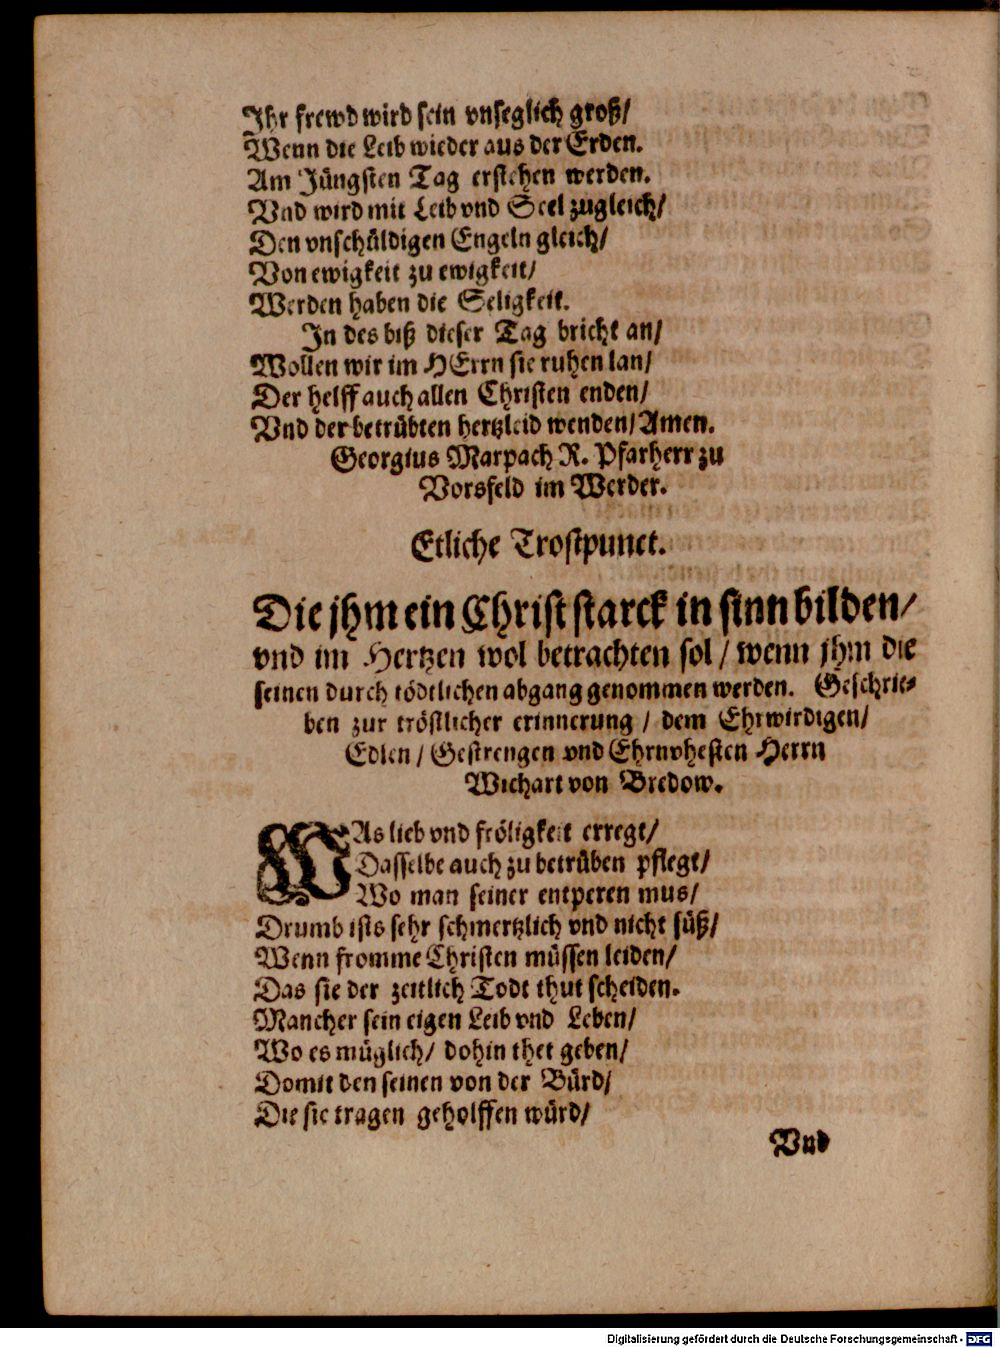 Ihr frewd wird sein vnseglich groß/
Wenn die Leib wieder aus der Erden.
Am Jüngsten Tag erstehen werden.
Vnd wird mit Leib vnd Seel zugleich/
Den vnschüldigen Engeln gleich/
Von ewigkeit zu ewigkeit/
Werden haben die Seligkeit.
In des biß dieser Tag bricht an/
Wollen wir im HErrn sie ruhen lan/
Der helff auch allen Christen enden/
Vnd der betrübten hertzleid wenden/ Amen.
Georgius Marpach R. Pfarherr zu
Vorsfeld im Werder.
Etliche Trostpunct.
Die jhm ein Christ starck in sinn bilden/
vnd im Hertzen wol betrachten sol / wenn jhm die
seinen durch tödtlichen abgang genommen werden. Geschrie-
ben zur tröstlicher erinnerung / dem Ehrwirdigen/
Edlen / Gestrengen vnd Ehrnvhesten Herrn
Wichart von Bredow.
WAs lieb vnd fröligkeit erregt/
Dasselbe auch zu betrüben pflegt/
Wo man seiner entperen mus/
Drumb ists sehr schmertzlich vnd nicht süß/
Wenn fromme Christen müssen leiden/
Das sie der zeitlich Todt thut scheiden.
Mancher sein eigen Leib vnd Leben/
Wo es müglich/ dohin thet geben/
Domit den seinen von der Bürd/
Die sie tragen geholffen würd/
Vnd
Digitalisierung gefördert durch die Deutsche Forschungsgemeinschaft - DFG